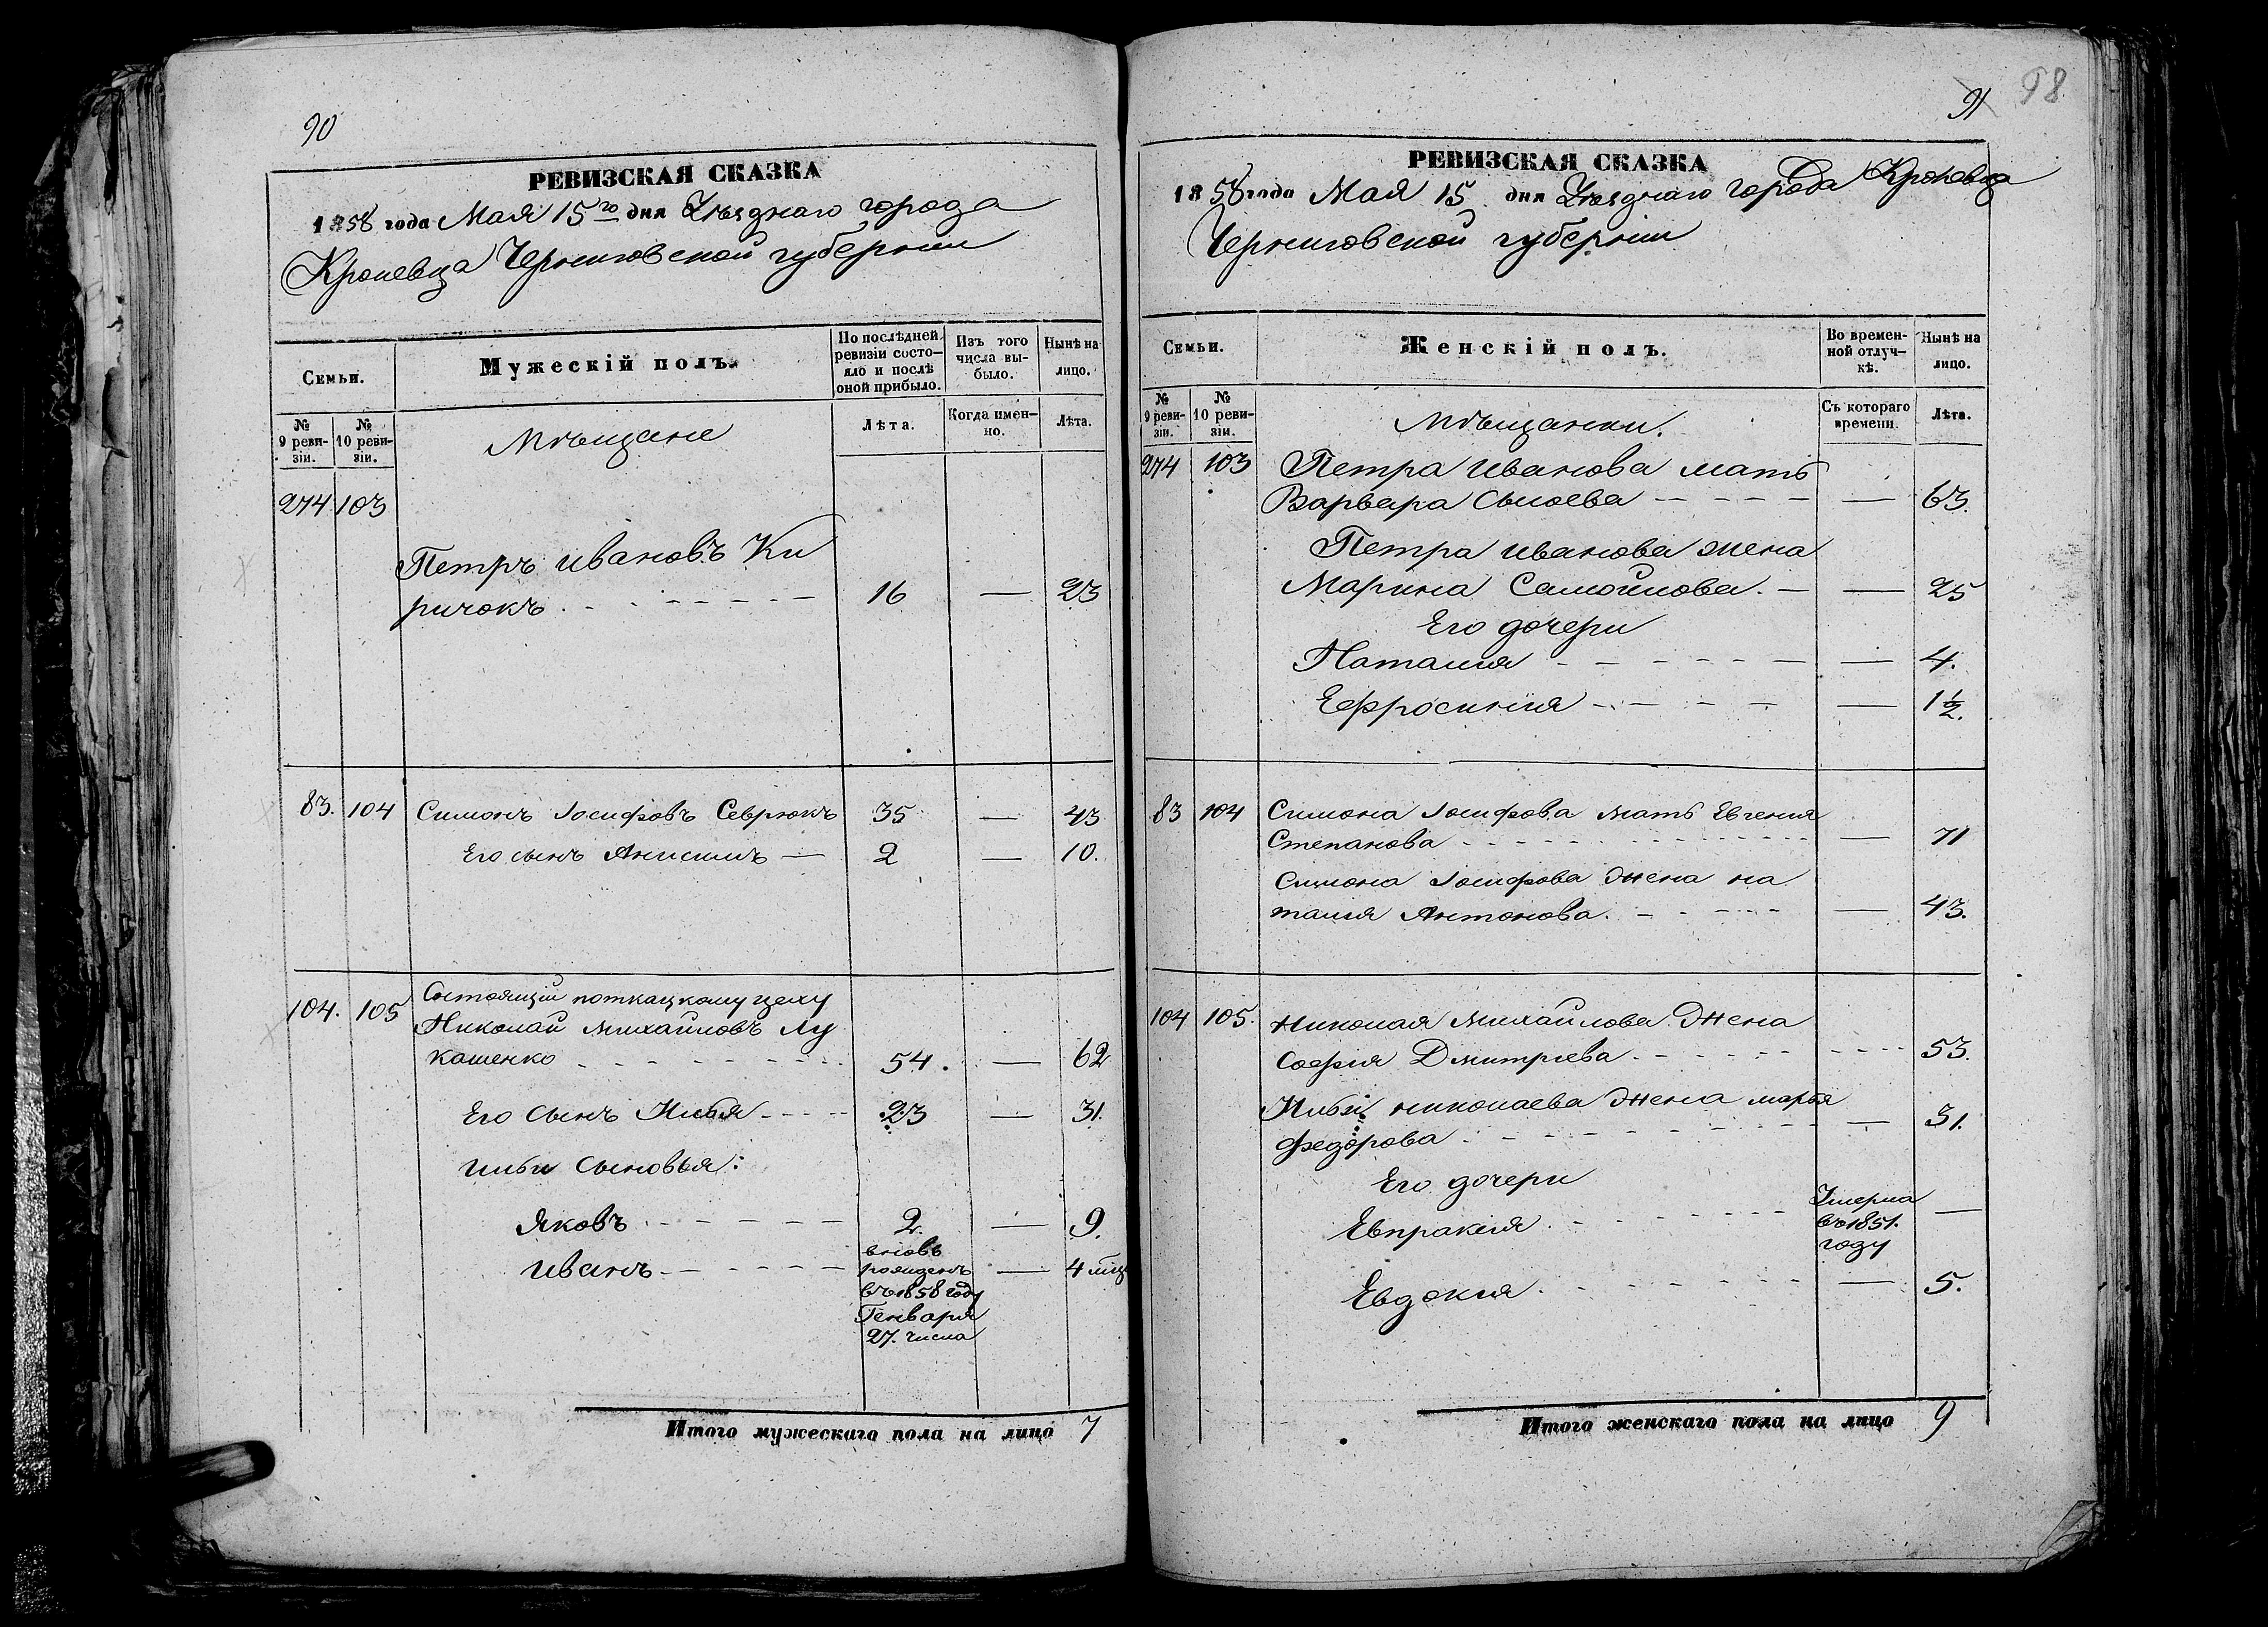 90
РЕВИЗСКАЯ СКАЗКА
1858 года Мая 15го дня Уѣзднаго города
Кролевца Черниговской губерніи
Семьи.
Мужескій полъ.
По послѣдней
ревизіи состо-
яло и послѣ
оной прибыло.
Изъ того
числа вы-
было.
Нынѣ на
лицо.
№
9 реви-
зіи.
№
10 реви-
зіи.
Мѣщане
Лѣта.
Когда имен-
но.
Лѣта.
274 103
Петръ Ивановъ Ки
ричокъ 16 — 23
83. 104 Симонъ Іосифовъ Севрюкъ 35 — 43
Его сынъ Анисимъ — 2 — 10.
104. 105 Состоящій поткацкому цеху
Николай Михайловъ Лу
кашенко 54. — 62
Его сынъ Илья 23 — 31.
Ильи сыновья:
Яковъ 2. — 9.
Иванъ — 4 мѣц
вновь
рожденъ
въ 1858 году
Генваря
27. числа
Итого мужескаго пола на лицо 7
91
98
РЕВИЗСКАЯ СКАЗКА
1858 года Мая 15 дня Уѣзднаго города Кролевца
Черниговской губерніи
Семьи.
Женскій полъ.
Во времен-
ной отлуч-
кѣ.
Нынѣ на
лицо.
№
9 реви-
зіи.
№
10 реви-
зіи.
Мѣщанки.
Съ котораго
времени.
Лѣта.
274 103 Петра Иванова мать
Варвара Сысоева — 63.
Петра Иванова жена
Марина Самойлова. — — 25
Его дочери
Наталия — 4.
Ефросинія — 1½.
83 104 Симона Іосифова мать Евгения
Степанова — 71
Симона Іосифова жена На
талия Антонова. — 43.
104 105. Николая Михайлова жена
София Дмитриева 53.
Ильи Николаева жена Марья
Федорова — 31.
Его дочери
Евпраксія Умерла
въ 1851.
году —
Евдокия — 5.
Итого женскаго пола на лицо 9